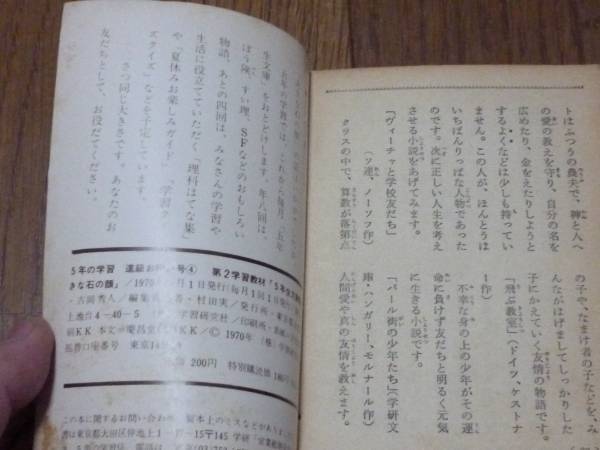 トはふつうの農夫で、神と人へ
の愛の教えを守り、自分の名を
広めたり、金をえたりしようと
するよくなどは少しも持ってい
ません。この人が、ほんとうは
いちばんりっぱな人物であった
のです。次に正しい人生を考え
させる小説をあげてみます。
「ヴィーチャと学校友だち」
（ソ連、ノーソフ作）
クリスの中で、算数が落第点
の子や、なまけ者の子などを、み
んながはげましてしっかりした
子にかえていく友情の物語です。
「飛ぶ教室」（ドイツ、ケストナ
ー作）
不幸な身の上の少年がその運
命に負けず友だちと明るく元気
に生きる小説です。
「パール街の少年たち」（学研文
庫・ハンガリー、モルナール作）
人間愛や真の友情を教えます。
五年の学習では、これから毎月、「五年
生文庫」をおとどけします。年八回は、
ぼう険、すい理、SFなどのおもしろい
物語、あとの四回は、みなさんの学習や
生活に役立てていただく「理科はてな集」
や「夏休みお楽しみガイド」「学習ク
スクイズ」などを予定しています。
さつ同じ大きさです。あなたのお
友だちとして、お役だてください。
5年の学習 号④ 第2学習教材「5年
きな石の顔」/1970年 月1日発行(毎月1回1日
古岡秀人/編集 村田実/発行所
上池台4-40-5 学習研究社/印刷所
刷KK 本文 慶昌堂 KK/© 1970年
振替口座番号 東京14
200円 特別購読価
この本に関するお問い合わせ 本上のミスなどがありました
書は東京都大田区仲池上1- -15〒145 学研
5年の学習